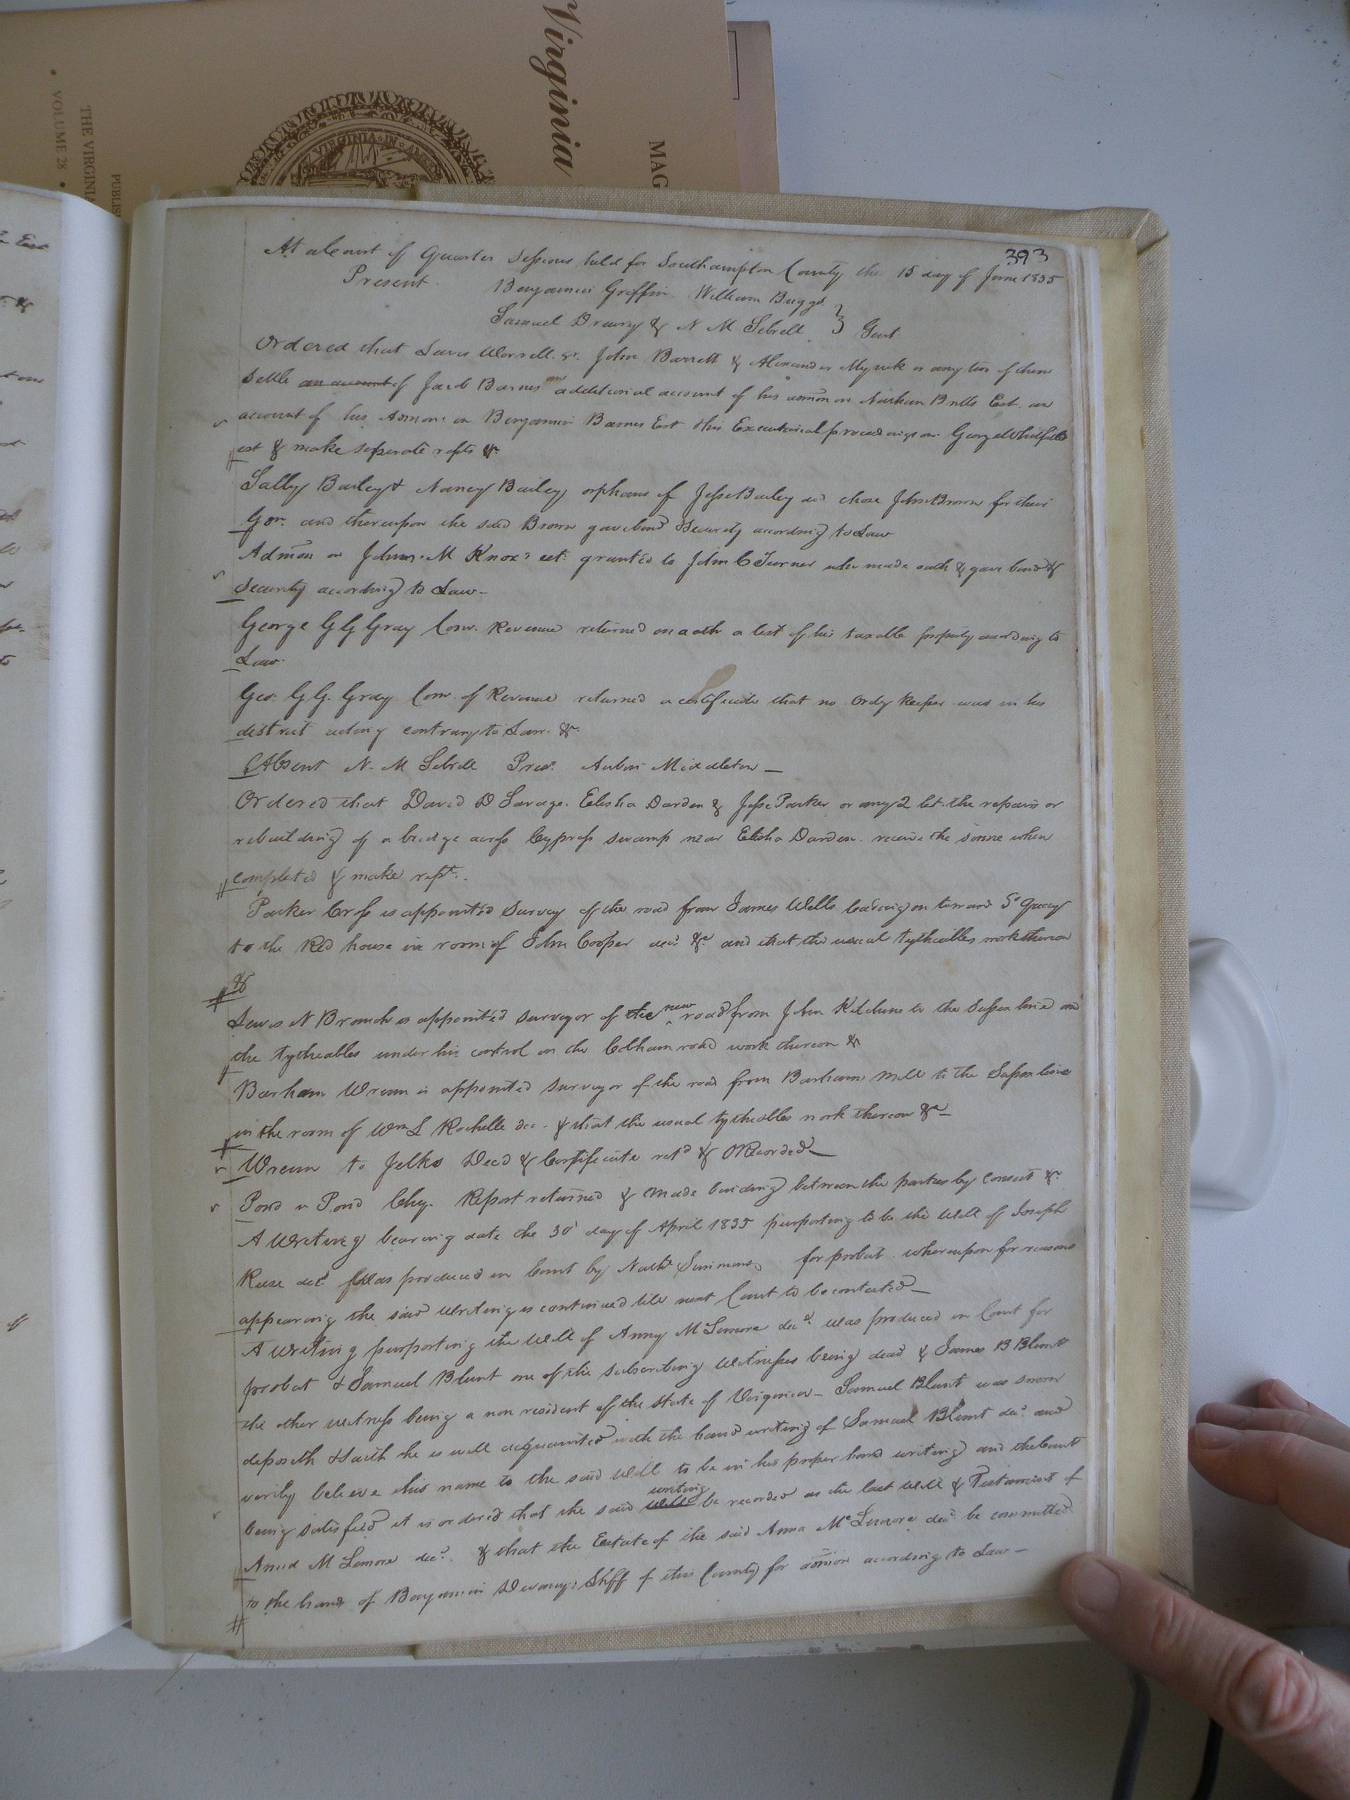 Virginia
MAG
THE VIRGINIA
VOLUME 28
PUBLIS
VIRGINIA
393
At a Court of Quarter Sessions held for Southampton County the 15 day of June 1835
Present Benjamin Griffin William Buggs
Samuel Drewry & N M Sebrell Gent
Ordered that Lewis Worrell sr. John Barrett & Alexander Myrick or any two of them
settle an account of Jacob Barnes additional account of his admon on Nathan Britts Est. an
account of his Admon: on Benjamin Barnes Est this Executorial proceedings on George Whitfields
est & make seperate repts &c
Sally Bailey & Nancy Bailey orphans of Jesse Bailey decd chose John Brown for their
Gdn. and thereupon the said Brown gave bond & security according to Law
Admon on James M Knox's est: granted to John C Turner who made oath & gave bond &
security according to Law-
George G G Gray Com. Revenue returned on oath a list of his taxable property according to
Law.
Geo. G G. Gray Com. of Revenue returned a certificate that no Ordy Keeper was in his
district acting contrary to Law. &c
Absent N. M Sebrell Pres. Middleton
Ordered that David D Savage. Elisha Darden & Jesse Parker or any 2 let the repairs or
rebuilding of a bridge across Cypress swamp near Elisha Darden receive the same when
completed & make rept.
Parker is appointed Survey of the road from James Wells leading on toward
to the Red house in room of John Cooper decd &c and that the usual tytheables work thereon
&c
Lewis N Branch is appointed surveyor of the new road from John to the Sussex line and
the tytheables under his control on the Cobham road work thereon &c
Barham Wrenn is appointed surveyor of the road from Barham Mill to the Sussex line
in the room of Wm L Rochelle dec. & that the usual tytheables work thereon &c-
Wrenn to Jelks Deed & Certificate retd & ORecorded
Pond v Pond Chy. Report returned & made binding between the parties by consent &c
A Writing bearing date the 30 day of April 1835 purporting to be the Will of Joseph
decd was produced in Court by Nathl Simmons for probat whereupon for reasons
appearing the said writing is continued till next Court to be contested
A writing purporting the Will of Anny McLemore decd was produced in Court for
probat & Samuel Blunt one of the subscribing witnesses being dead & James B Blunt
the other witness being a non resident of the State of Virginia - Samuel Blunt was sworn
deposeth & saith he is well acquainted with the hand writing of Samuel Blunt decd and
verily believe this name to the said Will to be in his proper hand writing and the Court
being satisfied it is ordered that the said will writing be recorded as the last Will & Testament of
McLemore decd. & that the Estate of the said Anna McLemore decd be committed
to the hands of Benjamin Devany Shff of this County for admon according to Law-